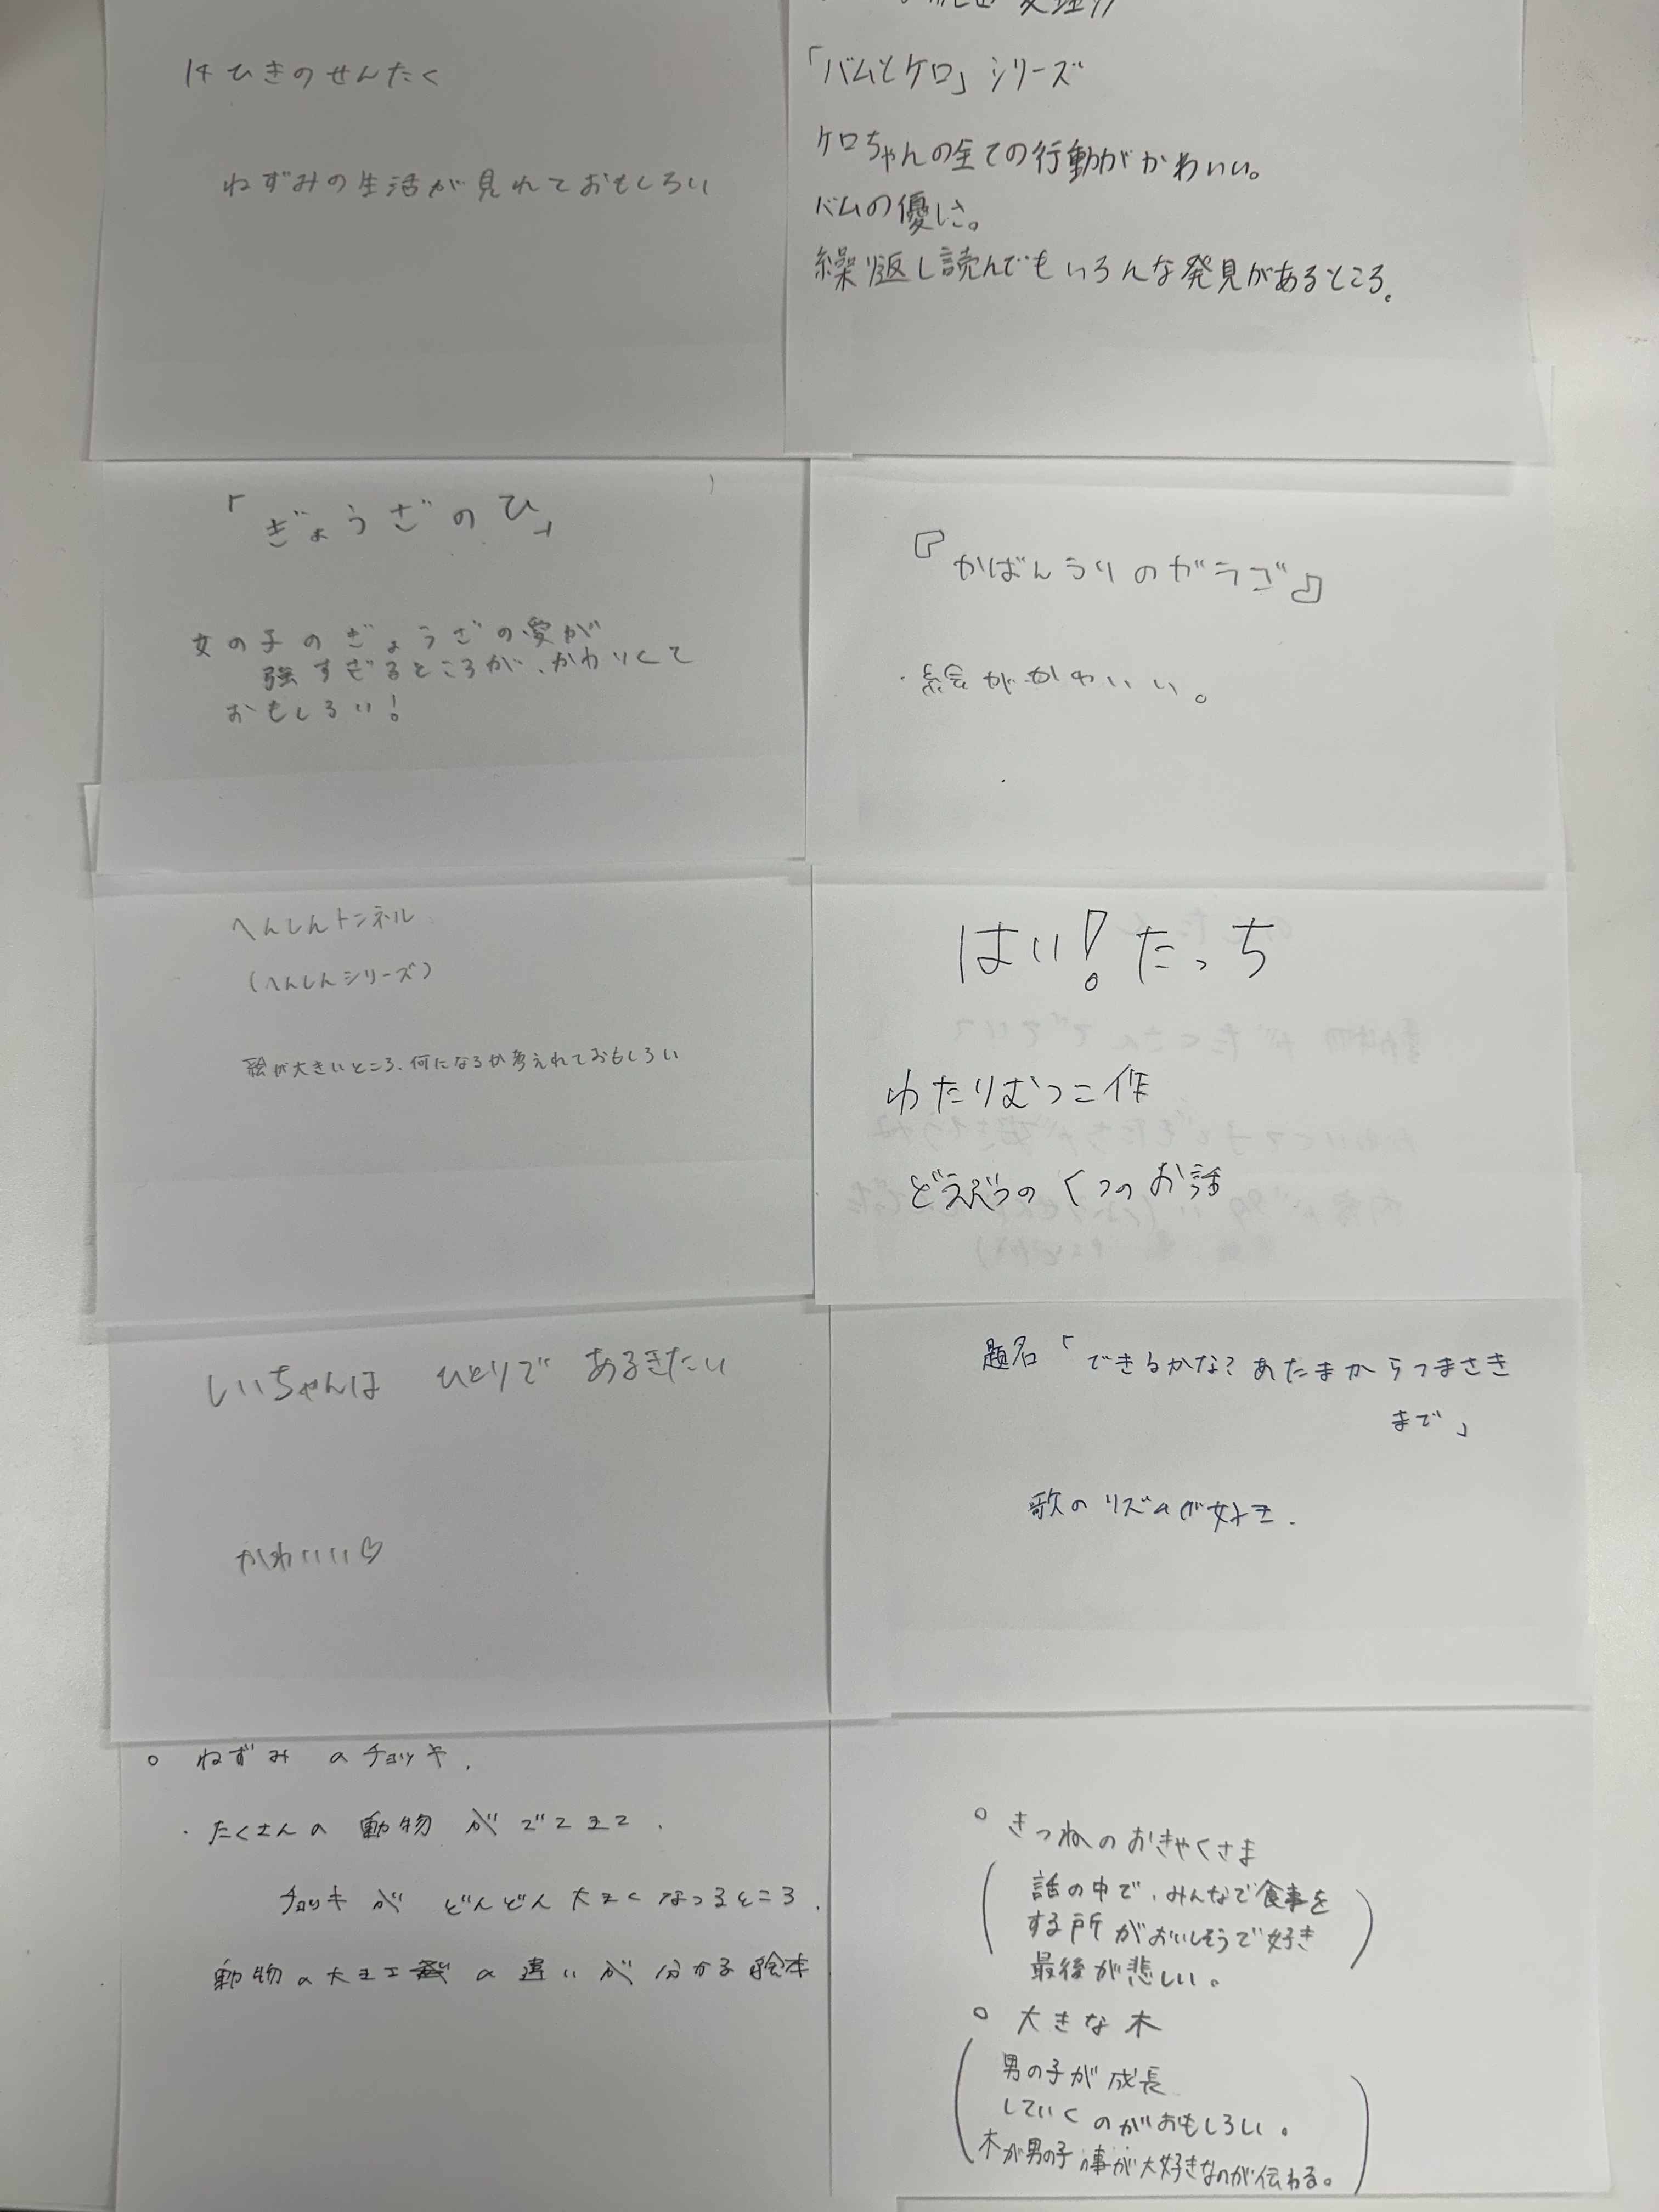 14ひきのせんたく
ねずみの生活が見れておもしろい
「バムとケロ」シリーズ
ケロちゃんの全ての行動がかわいい。
バムの優しさ。
繰り返し読んでもいろんな発見があるところ。
「ぎょうざのひ」
女の子のぎょうざの愛が
強すぎるところが、かわいくて
おもしろい!
『かばんうりのガラゴ』
・絵がかわいい。
へんしんトンネル
(へんしんシリーズ)
絵が大きいところ、何になるか考えれておもしろい
はい!たっち
わたりむつこ作
どうぶつのくつのお話
しいちゃんは ひとりで あるきたい
かわいい♡
題名「できるかな?あたまからつまさき
まで」
歌のリズムが好き.
○ ねずみのチョッキ.
・たくさんの動物がでてきて.
チョッキがどんどん大きくなってるところ.
動物の大きさの違いが分かる絵本
○ きつねのおきゃくさま
(話の中で、みんなで食事を
する所がおいしそうで好き
最後が悲しい。)
○ 大きな木
(男の子が成長
していくのがおもしろい。
木が男の子の事が大好きなのが伝わる。)